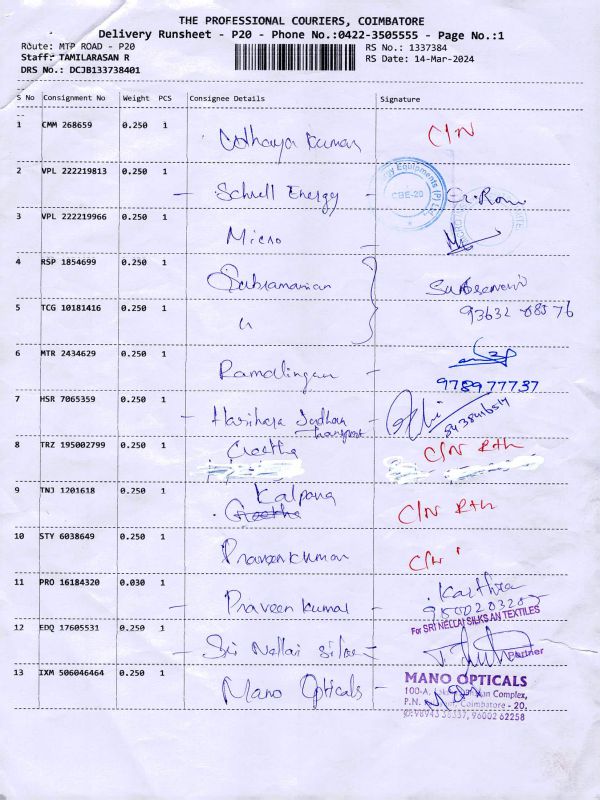 THE PROFESSIONAL COURIERS, COIMBATORE
Delivery Runsheet - P20 - Phone No.:0422-3505555 - Page No.:1
Route: MTP ROAD - P20 RS No.: 1337384
Staff: TAMILARASAN R RS Date: 14-Mar-2024
DRS No.: DCJB133738401
S No Consignment No Weight PCS Consignee Details Signature
1 CMM 268659 0.250 1 Udhaya Kumar C/N
2 VPL 222219813 0.250 1 Schnell Energy
Energy Equipments (P) Ltd
CBE-20
3 VPL 222219966 0.250 1 Micro
4 RSP 1854699 0.250 1 Subramanian
5 TCG 10181416 0.250 1 " 93632 08576
6 MTR 2434629 0.250 1 Ramalingam
9789977737
7 HSR 7065359 0.250 1 Harihara Sudhan
Transport
8 TRZ 195002799 0.250 1 Geetha C/N Rth
9 TNJ 1201618 0.250 1 Kalpana C/N Rth
Geetha
10 STY 6038649 0.250 1 Praveen Kumar C/N
11 PRO 16184320 0.030 1 Praveen Kumar Karthica
For SRI NELLAI SILKS AN TEXTILES
12 EDQ 17605531 0.250 1 Sri Nellai Silks
Partner
13 IXM 506046464 0.250 1 Mano Opticals
MANO OPTICALS
100-A, Complex,
P.N. Coimbatore - 20.
98943 38337, 96002 62258